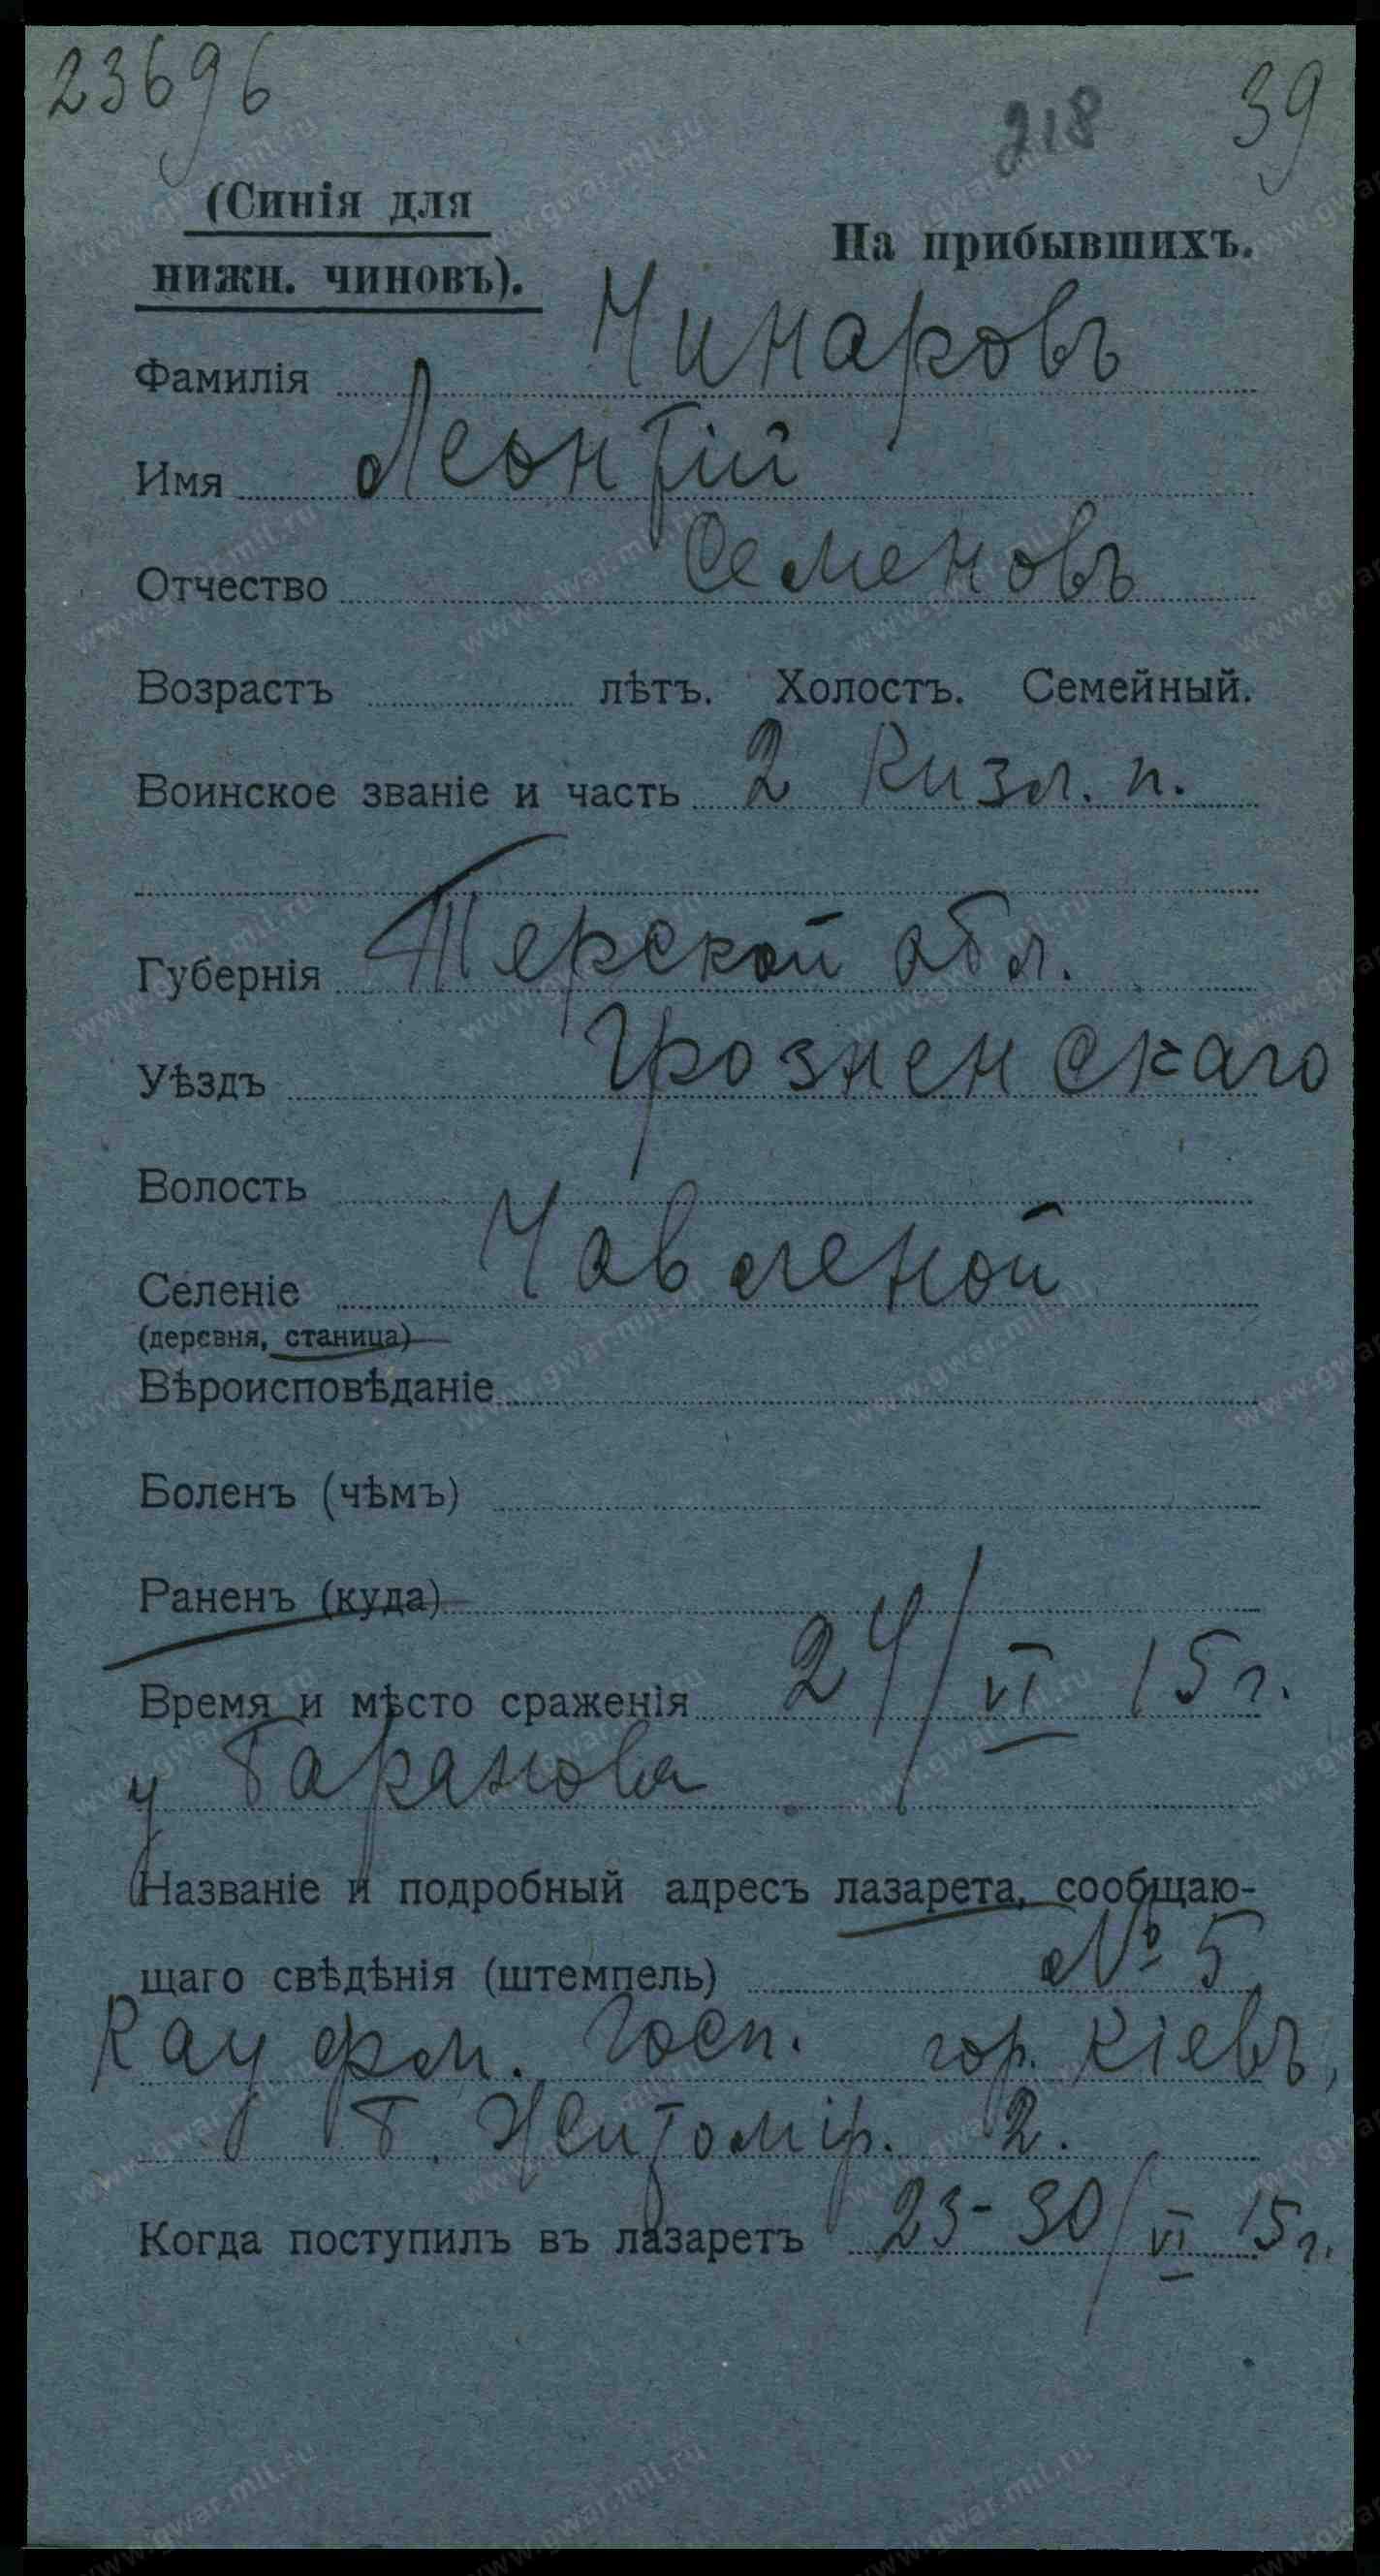 23696
218
39
(Синія для
нижн. чиновъ).
На прибывшихъ.
Фамилія Чинаровъ
Имя Леонтій
Отчество Семеновъ
Возрастъ лѣтъ. Холостъ. Семейный.
Воинское званіе и часть 2 Кизл. п.
Губернія Терской обл.
Уѣздъ Грозненскаго
Волость
Селеніе Чавленой
(деревня, станица)
Вѣроисповѣданіе
Боленъ (чѣмъ)
Раненъ (куда)
Время и мѣсто сраженія 24/VI 15 г.
у Баранова
Названіе и подробный адресъ лазарета, сообщаю-
щаго свѣдѣнія (штемпель) № 5
Кауфм. Госп. гор. Кіевъ,
Б. Житомір. 2.
Когда поступилъ въ лазаретъ 23-30/VI 15 г.
www.gwar.mil.ru